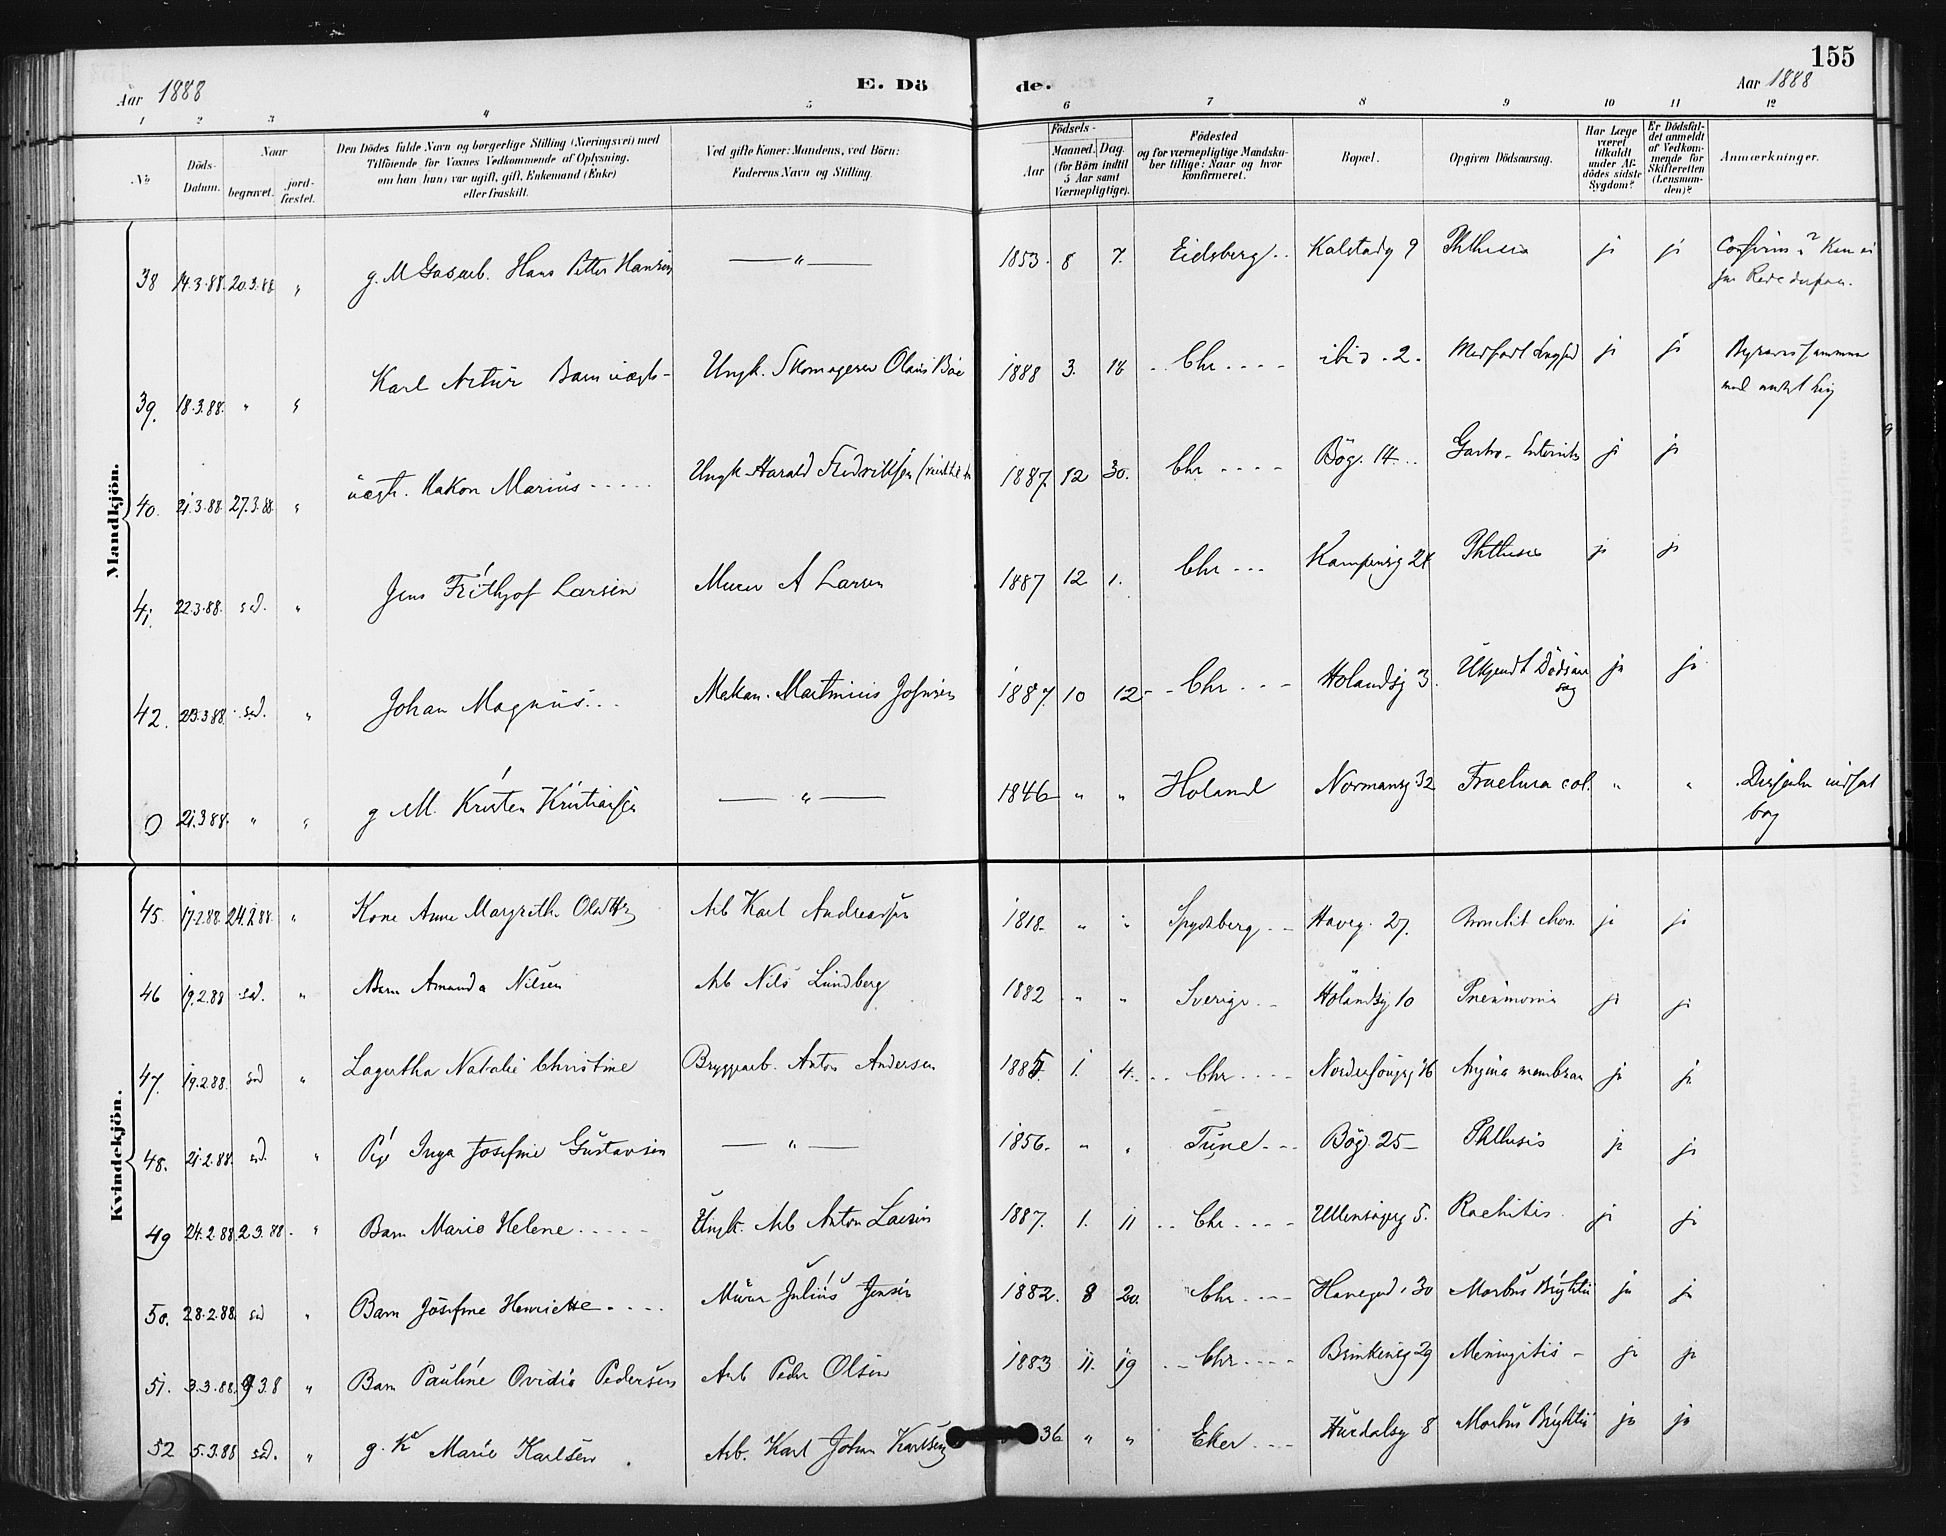 155
Aar 1888 E. Dö de. Aar 1888
1 2 3 4 5 6 7 8 9 10 11 12
No
Döds-Datum.
Naar
begravet.
jord-fæstet.
Den Dödes fulde Navn og borgerlige Stilling (Næringsvei) med
Tilföiende for Voxnes Vedkommende af Oplysning,
om han (hun) var ugift, gift, Enkemand (Enke)
eller fraskilt.
Ved gifte Koner: Mandens, ved Börn:
Faderens Navn og Stilling.
Födsels-
Aar Maaned. Dag.
(for Börn indtil
5 Aar samt
Værnepligtige).
Födested
og for værnepligtige Mandska-
ber tillige: Naar og hvor
konfirmeret.
Bopæl.
Opgiven Dödsaarsag.
Har Læge
været
tilkaldt
under Af-
dödes sidste
Sygdom?
Er Dödsfal-
det anmeldt
af Vedkom-
mende for
Skifteretten
(Lensman-
den)?
Anmærkninger.
Mandkjön.
38 14.3.88. 20.3.88 " g. M Gasarb. Hans Petter Hansen — " — 1853. 8 7. Eidsberg.. Kalstadg 9 Phthisis ja ja
39. 18.3.88. " " Karl Artur Barn uægt- Ungk. Skomager Olaus Boe 1888 3. 18 .. Chr .... ibid. 2. Medfödt ja ja Begraves sammen
med andet Lig
40. 21.3.88 27.3.88 " uægt. Hakon Marius ..... Ungk Harald Fredriksen 1887. 12 30. Chr .... Bög. 14... Gastro-Enterit ja ja
41. 22.3.88. sd. " Jens Frithjof Larsen Murer A Larsen 1887 12 1. Chr ... Kampensg 24 Phthisis ja ja
42. 23.3.88. sd. " Johan Magnus... Mekan. Martinius Johnsen 1887. 10 12 - Chr ... Hölandsg 3. Ukjendt Dödsaar
sag ja ja
0 21.3.88. " " g M. Kristen Kristiansen — " — 1846 " " Höland Normansg. 32 Fractura col. " "
Kvindekjön.
45. 17.2.88 24.2.88 " Kone Anne Margrethe Olsdtr Arb Karl Andreassen 1818. " " Spydeberg.. Haveg. 27. Bronchit chron. ja ja
46 19.2.88 sd. " Barn Amanda Nilsen Arb Nils Lundberg 1882 " " Sverige.. Hölandsg 10 Pneumonia ja ja
47. 19.2.88. sd " Lagertha Natalie Christine Bryggearb. Anton Andersen 1885. 1. 4. ... Chr .... Nordenfougsg 16 Angina membran ja ja
48. 21.2.88. sd. " Pige Inga Josefine Gustavsen — " — 1856. " " Tune ... Bög. 25 - Phthisis ja ja
49 24.2.88 2.3.88. " Barn Marie Helene ..... Ungk. Arb Anton Larsen 1887. 1. 11 .. Chr .... Ullensagerg 5. Rachitis. ja ja
50. 28.2.88. sd " Barn Josefine Henriette .... Murer Julius Jensen 1882. 8 20. Chr .... Havegad. 30 Morbus Brightii ja ja
51. 3.3.88. 9 3.8 " Barn Pauline Ovidia Pedersen Arb Peder Olsen 1883 11. 19 .. Chr .... Brinkensg 29 Meningitis - ja ja
52 5.3.88 sd. " g. Ke Marie Karlsen. Arb. Karl Johan Karlsen 36 " " Eker ... Hurdalsg 8 Morbus Brightii ja ja